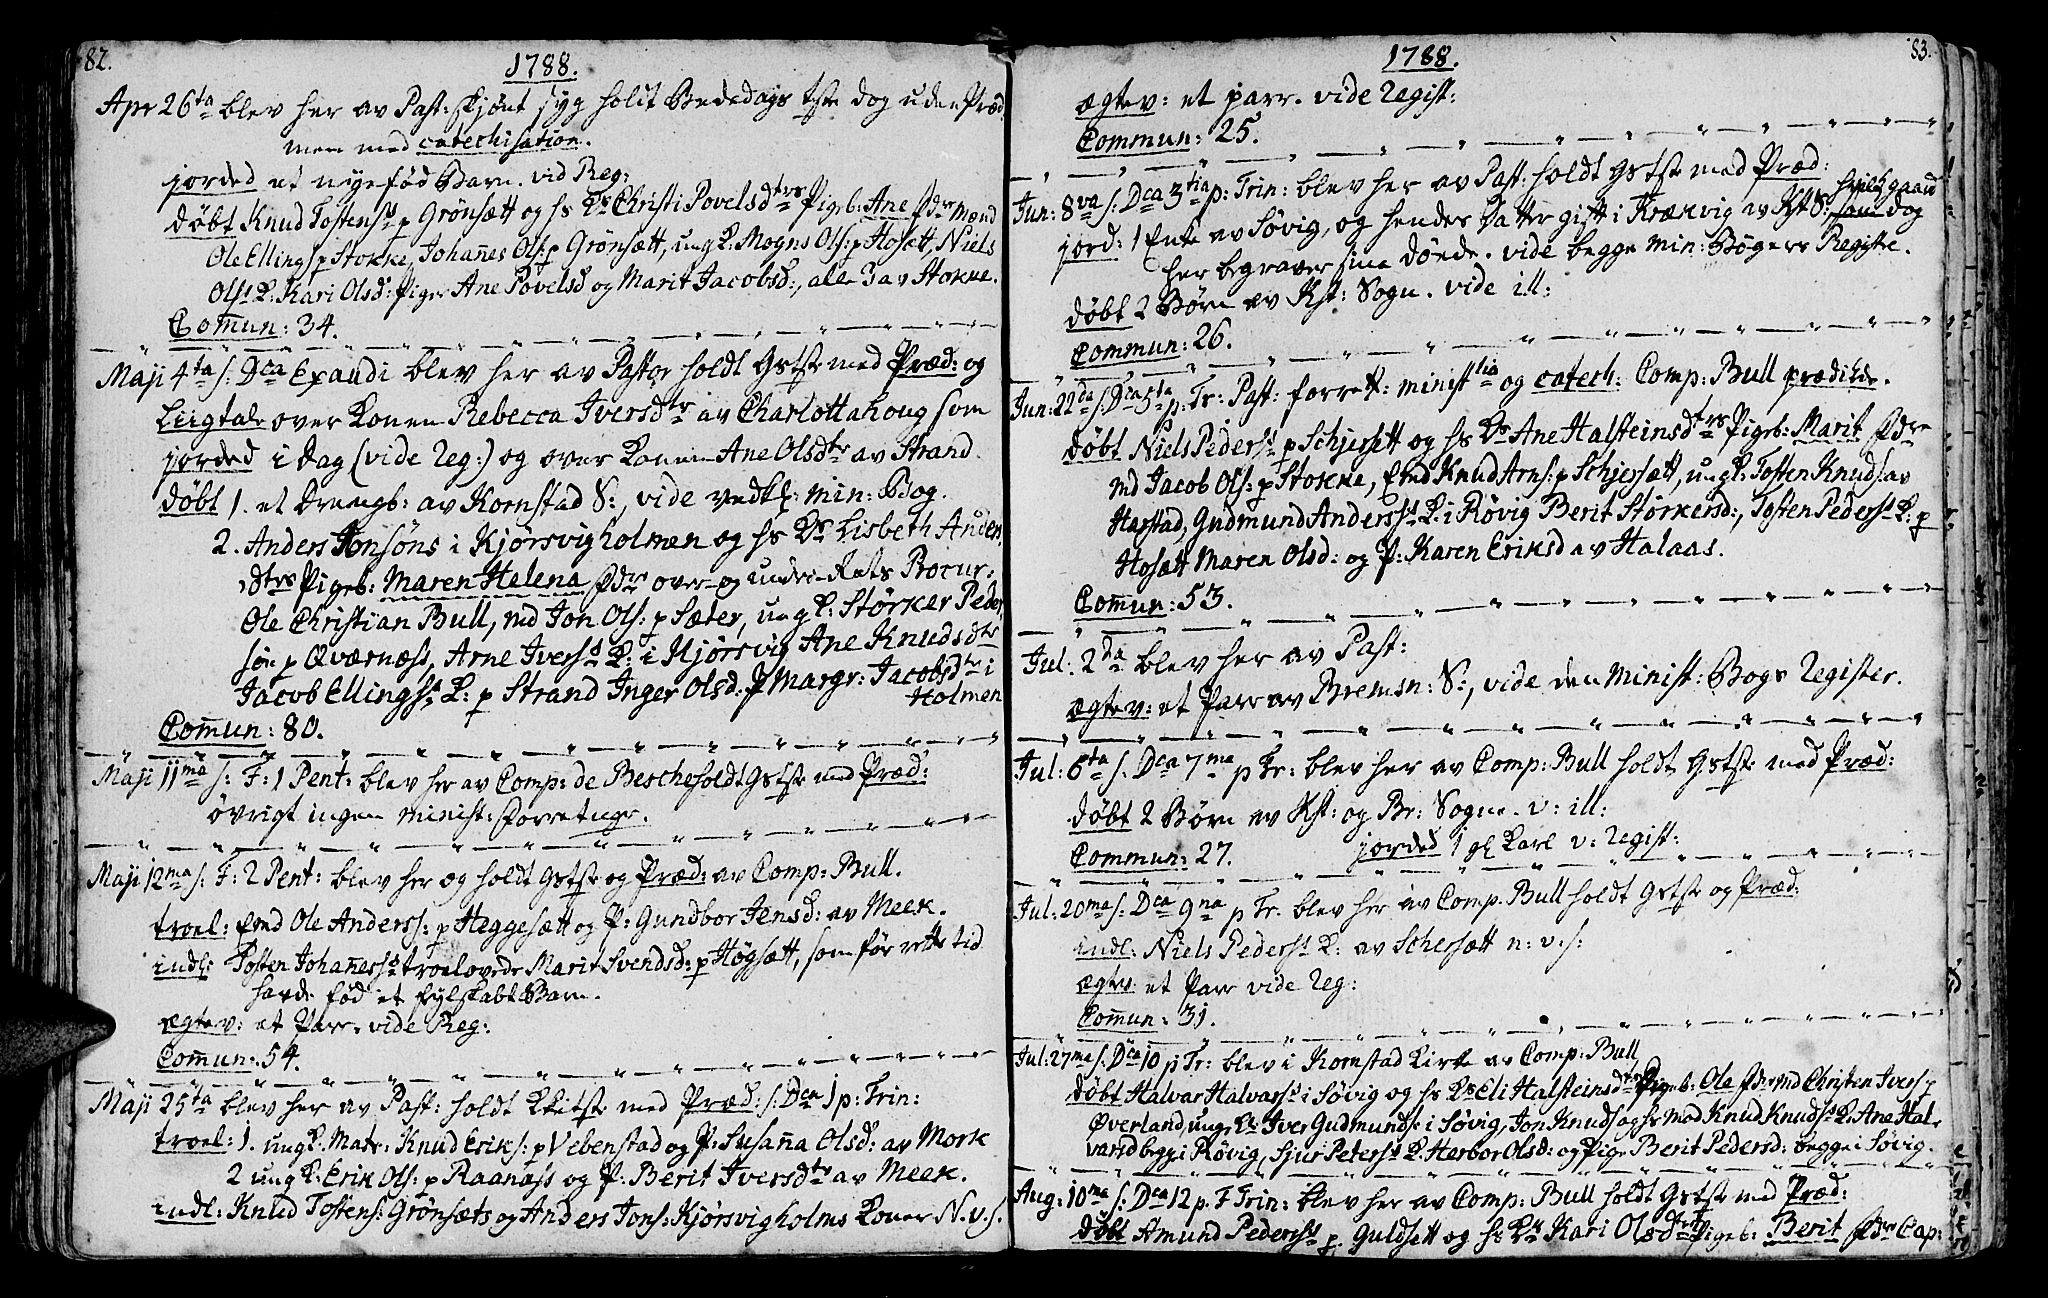 82.
1788.
Apr 26ta blev her av Past: skjönt syg holdt Bededags tste dog uden Præd
men med catechisation.
jorded et nyefød Barn. vid Reg:
döbt Knud Tostens: p Grönsætt og hs Ko Christi Povelsdtrs Pigeb: Ane Fdr mænd
Ole Ellings p Stokke, Johanes Ols: p Grönsætt, ung K: Mogns Ols: p Hosætt, Niels
Ols: K: Kari Olsd: Piger Ane Povelsd og Marit Jacobsd:, alle 3 av Stokke.
Comun: 34.
Maji 4ta s: Dca Exaudi blev her av Pastor holdt Gstste med Præd: og
Liigtale over Konen Rebecca Iversdtr av Charlottahoug som
jorded i Dag (vide Reg:) og over Konen Ane Olsdtr av Strand.
döbt 1. et Drengb: av Kornstad S:, vide vedk: min: Bog.
2. Anders Jonsöns i Kjörsvigholmen og hs Ko Lisbeth Anders
dtrs Pigeb: Maren Helena Fdr over- og under-Rets Procur:
Ole Christian Bull, md Jon Ols: p Sæter, ung K: Störker Peder
sön p Qværnæss, Arne Ivers: K: i Kjörsvig Ane Knudsdtr
Jacob Ellings: K: p Strand Inger Olsd: P Margr: Jacobsdtr i
Holmen
Comun: 80.
Maji 11ma s: F: 1 Pent: blev her av Comp: de Besche holdt Gstste med Præd:
övrigt ingen minist: Forretnger.
Maji 12ma s: F: 2 Pent: blev her og holdt Gstste og Præd: av Comp: Bull.
troel: Emd Ole Anders: p Heggesætt og P: Gundbor Jensd: av Meek.
indl: Tosten Johaness: troelovede Marit Svendsd: p Högsætt, som för rette tid
havde fød et fylskabt Barn.
ægtev: et Parr. vide Reg:
Comun: 54.
Maji 25ta blev her av Past: holdt Gstste med Præd: s: Dca 1 p: Trin:
troel: 1. ung K. Matr: Knud Eriks: p Vebenstad og P: Susana Olsd: av Mork
2 ung K: Erik Ols: p Raanæss og P: Berit Iversdtr av Meek.
indl: Knud Tostens: Grönsæts og Anders Jons: Kjörsvigholms Koner N.v.s.
83.
1788.
ægtev: et parr. vide Regist:
Commun: 25.
Jun: 8va s: Dca 3tia p: Trin: blev her av Past: holdt Gstste med Præd:
jord: 1 Enke av Sövig, og hendes Datter gift i Krækvig av Kst S: som dog
her begraver sine döede. vide begge min: Bögers Registre.
döbt 2 Börn av Kst: Sogn. vide ill:
Commun: 26.
Jun: 22da s: Dca 5ta p: Tr: Past: forrett: ministtia og catech: Comp: Bull prædikde.
döbt Niels Peders: p Schjersett og hs Ko Ane Halsteinsdtrs Pigeb: Marit Fdre
md Jacob Ols: p Stokke, Emd Knud Arns: p Schjersætt, ung K: Tosten Knuds: av
Harstad, Gudmund Anders: K: i Rövig Berit Störkersd:, Tosten Peders: K: p
Hosætt Maren Olsd: og P: Karen Eriksd av Halaas.
Comun: 53.
Jul: 2da blev her av Past:
ægtev: et Parr av Bremsn: S:, vide den Minist: Bogs Register.
Jul: 6ta s: Dca 7ma p Tr: blev her av Comp: Bull holdt Gstste med Præd:
döbt 2 Börn av Kst: og Br: Sogne. v: ill:
Commun: 27. jorded 1 gl Karl v: Regist:
Jul: 20ma s: Dca 9na p Tr: blev her av Comp: Bull holdt Gstste og Præd:
indl: Niels Peders: K: av Schersætt n: v: s:
ægtev: et Parr vide Reg:
Comun: 31.
Jul: 27ma s: Dca 10 p Tr: blev i Kornstad Kirke av Comp: Bull
döbt Halvar Halvars: i Sövig og hs Ko Eli Halsteinsdtrs Pigeb: Ole Fdr md Christen Ivers p
Överland, ung K: Iver Gudmunds: i Sövig, Jon Knuds og hs mad Knud Knuds: K: Ane Hal-
varsd begge i Rövig, Sjur Peters: K: Herbor Olsd: og Pige Berit Pedersd: begge i Sövig.
Aug: 10ma s: Dca 12 p. F Trin: blev her av Comp: Bull holdt Gstste med Præd:
döbt Amund Peders: p. Guldsett og hs Ko Kari Olsdtrs Pigeb: Berit Fdr Cap: